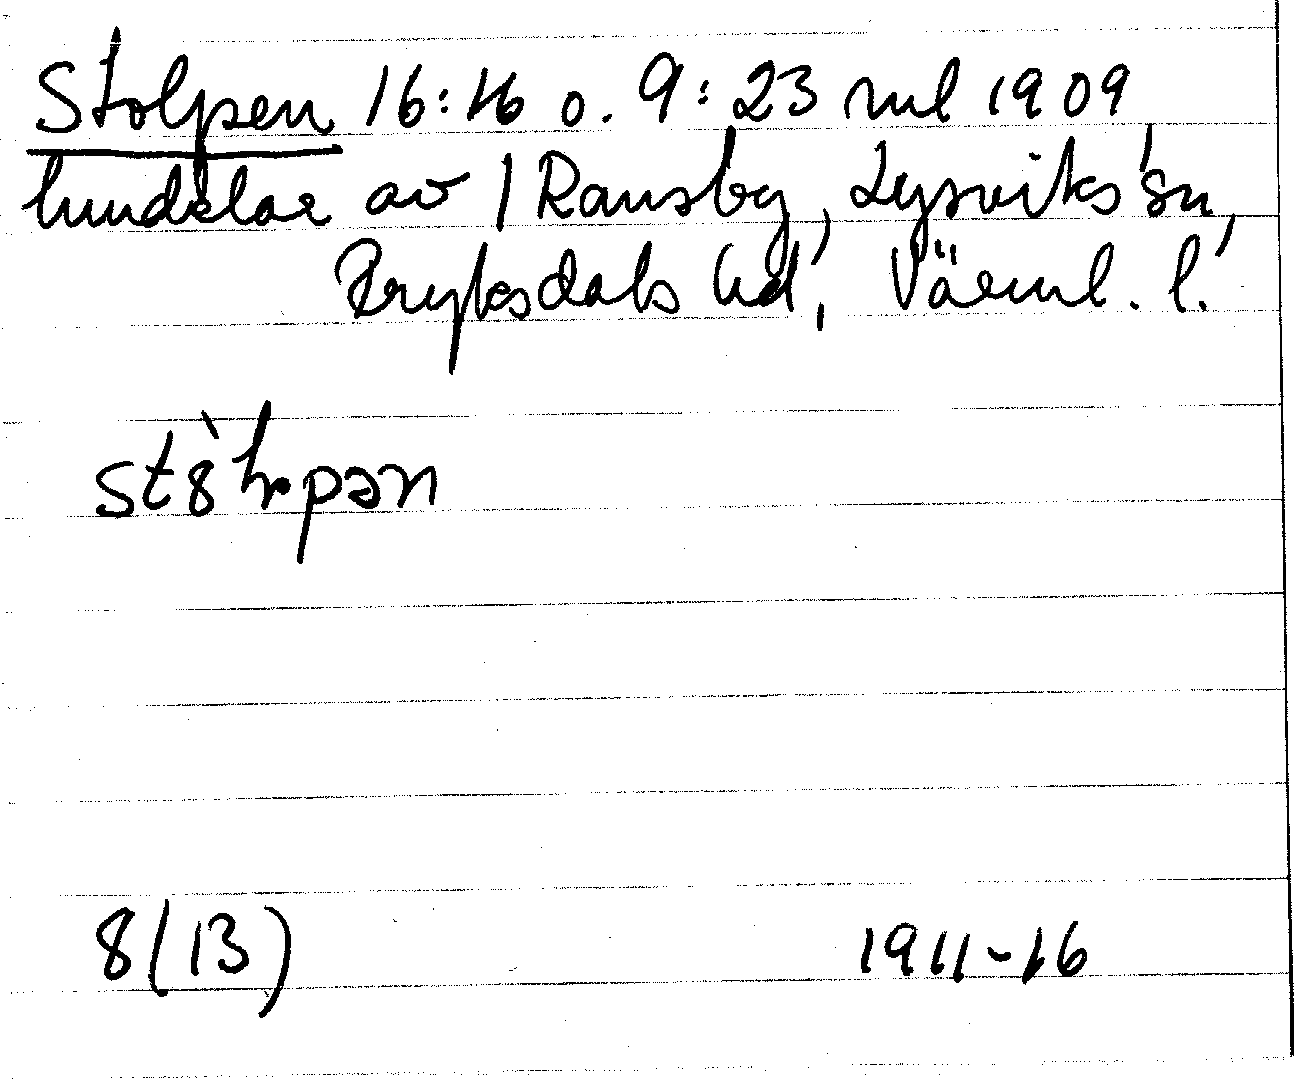 Stolpen 16:16 o. 9:23 rml 1909,
lundelar av 1 Ransby, Lysviks sn,
Fryksdals hd, Värml. l.
st8̀ɭpən
8(13) 1911-16